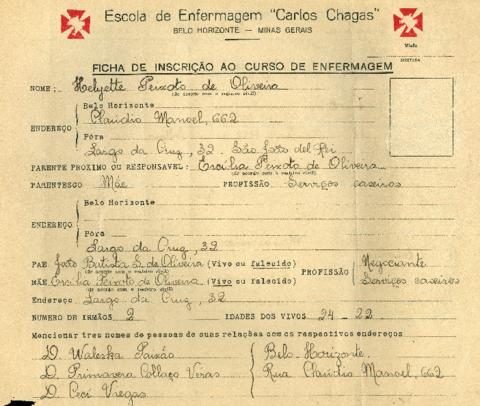 Escola de Enfermagem "Carlos Chagas"
BELO HORIZONTE — MINAS GERAIS
FICHA DE INSCRIÇÃO AO CURSO DE ENFERMAGEM
NOME: Helyette Peixoto de Oliveira
(de acordo com o registro civil)
Belo Horizonte
Claudio Manoel, 662
ENDEREÇO
Fóra
Largo da Cruz, 32 - São João del Rei
PARENTE PROXIMO OU RESPONSAVEL: Ercilia Peixoto de Oliveira
(de acordo com o registro civil)
PARENTESCO Mãe PROFISSÃO Serviços caseiros
Belo Horizonte
ENDEREÇO
Fóra
Largo da Cruz, 32
PAE João Batista S. de Oliveira (Vivo ou falecido) PROFISSÃO Negociante
(de acordo com o registro civil)
MÃE Ercilia Peixoto de Oliveira (Vivo ou falecido) Serviços caseiros
(de acordo com o registro civil)
Endereço Largo da Cruz, 32
NUMERO DE IRMÃOS 2 IDADES DOS VIVOS 24 - 22
Mencionar tres nomes de pessoas de suas relações com os respectivos endereços
D. Waleska Paixão Belo Horizonte.
D. Primavera Collaço Veras Rua Claudio Manoel, 662
D. Ceci Vargas